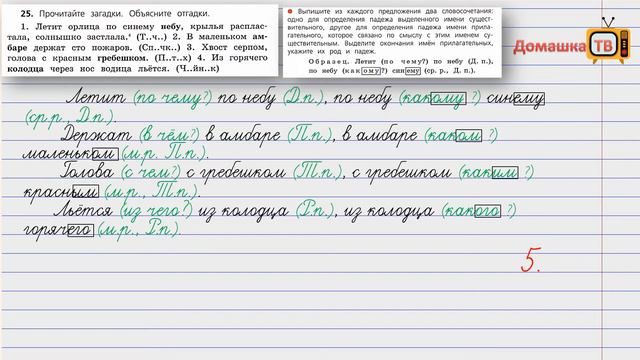 25. Прочитайте загадки. Объясните отгадки.
1. Летит орлица по синему небу, крылья распластала, солнышко застлала.⁴ (Т..ч..) 2. В маленьком амбаре держат сто пожаров. (Сп..чк..) 3. Хвост серпом, голова с красным гребешком. (П..т..х) 4. Из горячего колодца через нос водица льётся. (Ч..йн..к)
Выпишите из каждого предложения два словосочетания: одно для определения падежа выделенного имени существительного, другое для определения падежа имени прилагательного, которое связано по смыслу с этим именем существительным. Выделите окончания имён прилагательных, укажите их род и падеж.
Образец. Летит (по чему?) по небу (Д. п.),
по небу (какому?) синему (ср. р., Д. п.).
Домашка ТВ
Летит (по чему?) по небу (Д.п.), по небу (какому ?) синему
(ср.р., Д.п.).
Держат (в чём?) в амбаре (П.п.), в амбаре (каком ?)
маленьком (м.р. П.п.).
Голова (с чем?) с гребешком (Т.п.), с гребешком (каким ?)
красным (м.р., Т.п.).
Льётся (из чего?) из колодца (Р.п.), из колодца (какого ?)
горячего (м.р., Р.п.).
5.